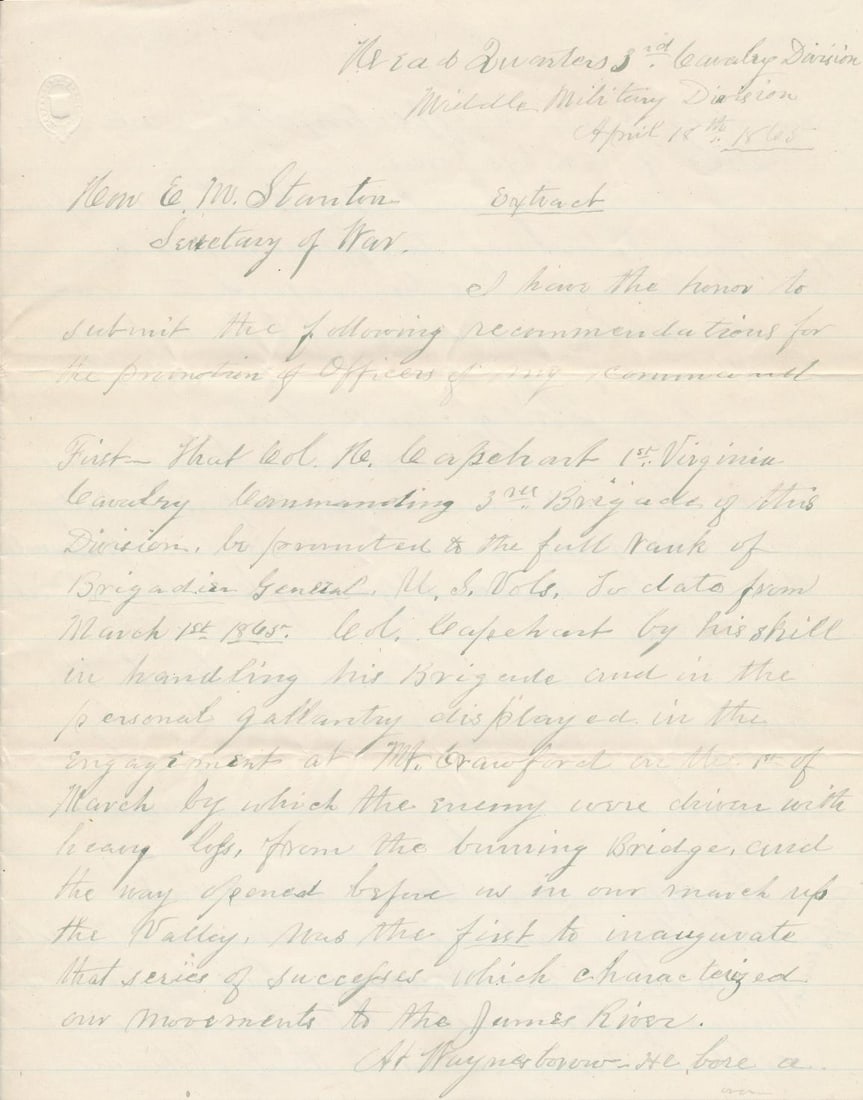 Head Quarters 3rd. Cavalry Division
Middle Military Division
April 18th. 1865
Hon E. M. Stanton Extract
Secretary of War.
I have the honor to
submit the following recommendations for
the promotion of Officers of my command
First— That Col. H. Capehart 1st. Virginia
Cavalry Commanding 3rd. Brigade of this
Division, be promoted to the full rank of
Brigadier General, U. S. Vols. To date from
March 1st 1865. Col. Capehart by his skill
in handling his Brigade and in the
personal gallantry displayed in the
engagement at Mt. Crawford on the 1st of
March by which the enemy were driven with
heavy loss, from the burning Bridge, and
the way opened before us in our march up
the Valley, was the first to inaugurate
that series of successes which characterized
our movements to the James River.
At Waynesborow— He bore a
over